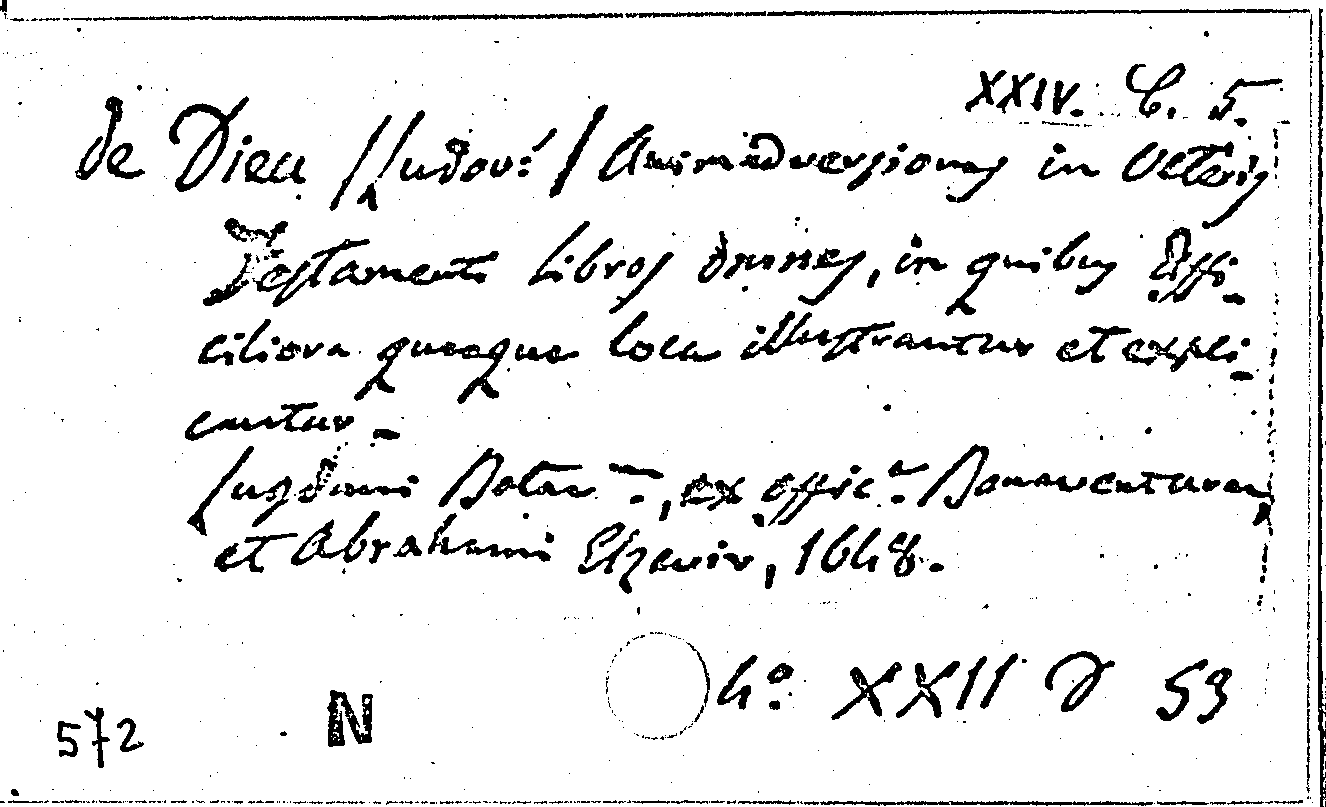 XXIV. C. 5.
de Dieu /Ludov:/ Animadversiones in Veteris
Testamenti libros omnes, in quibus diffi-
ciliora quaeque loca illustrantur et expli-
cantur -
Lugduni Batav:, ex offic: Bonaventurae
et Abrahami Elzevir, 1648.
4o. XXII D 53
N
572